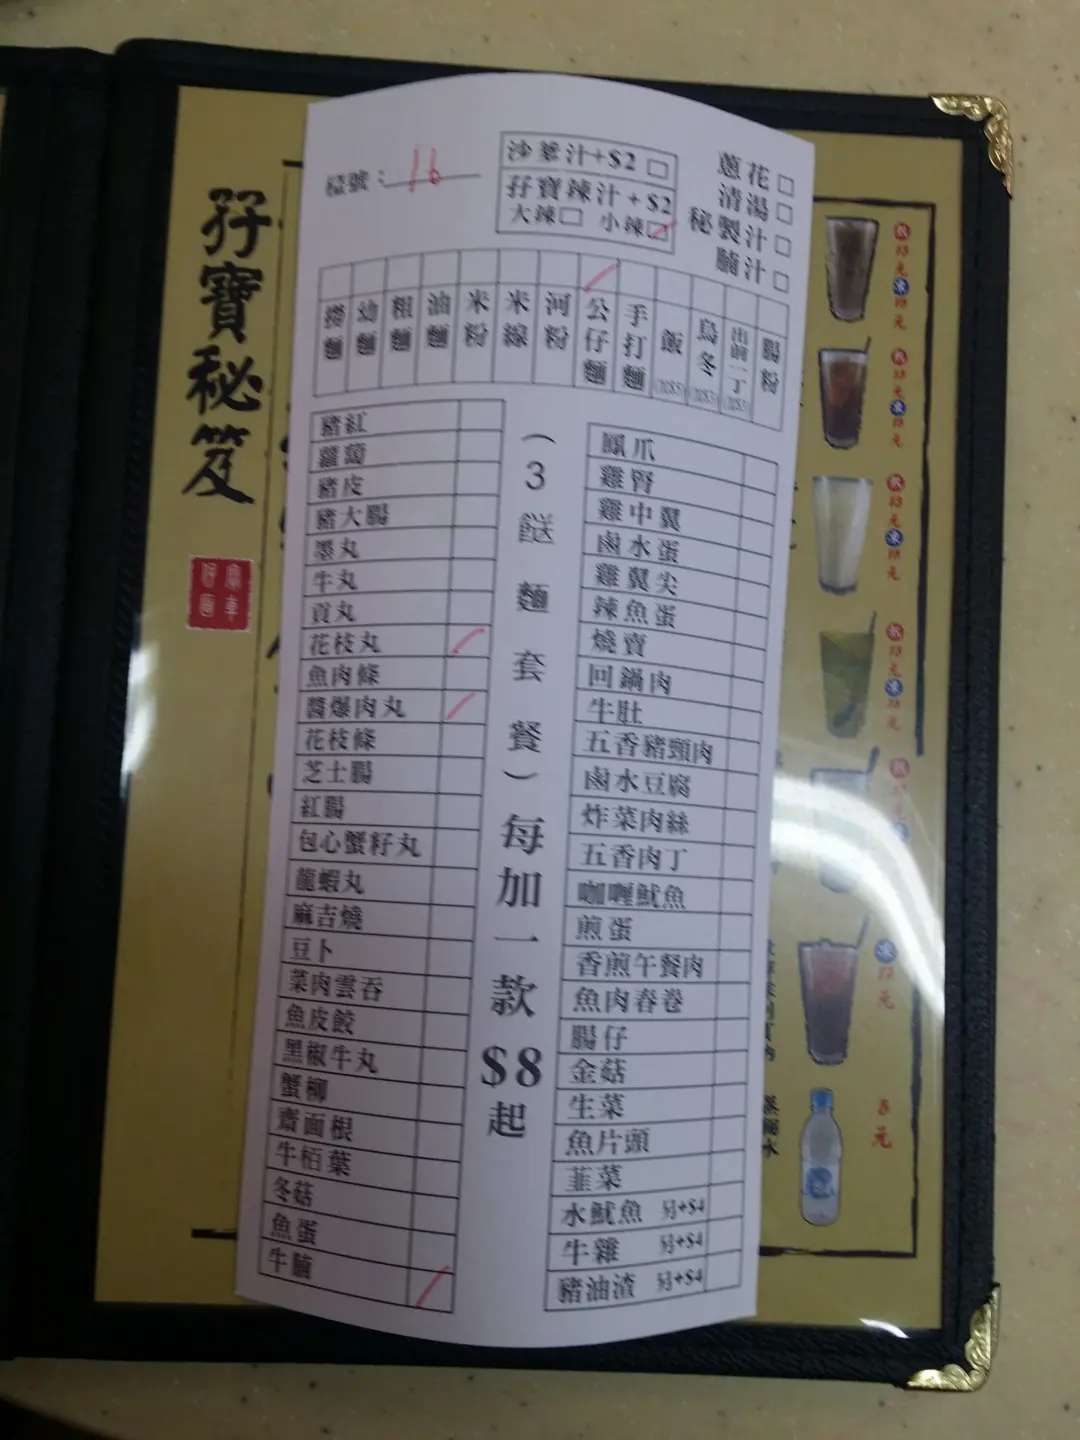 孖寶秘笈
檯號：16
沙爹汁+$2
孖寶辣汁+$2
大辣 小辣
蔥花
清湯
秘製汁
腩汁
撈麵
幼麵
粗麵
油麵
米粉
米線
河粉
公仔麵
手打麵
飯
烏冬
出前一丁
腸粉
豬紅
蘿蔔
豬皮
豬大腸
墨丸
牛丸
貢丸
花枝丸
魚肉條
醬爆肉丸
花枝條
芝士腸
紅腸
包心蟹籽丸
龍蝦丸
麻吉燒
豆卜
菜肉雲吞
魚皮餃
黑椒牛丸
蟹柳
齋面根
牛栢葉
冬菇
魚蛋
牛腩
（3餸麵套餐）每加一款$8起
鳳爪
雞腎
雞中翼
鹵水蛋
雞翼尖
辣魚蛋
燒賣
回鍋肉
牛肚
五香豬頸肉
鹵水豆腐
炸菜肉絲
五香肉丁
咖喱魷魚
煎蛋
香煎午餐肉
魚肉春卷
腸仔
金菇
生菜
魚片頭
韭菜
水魷魚 另+$4
牛雜 另+$4
豬油渣 另+$4